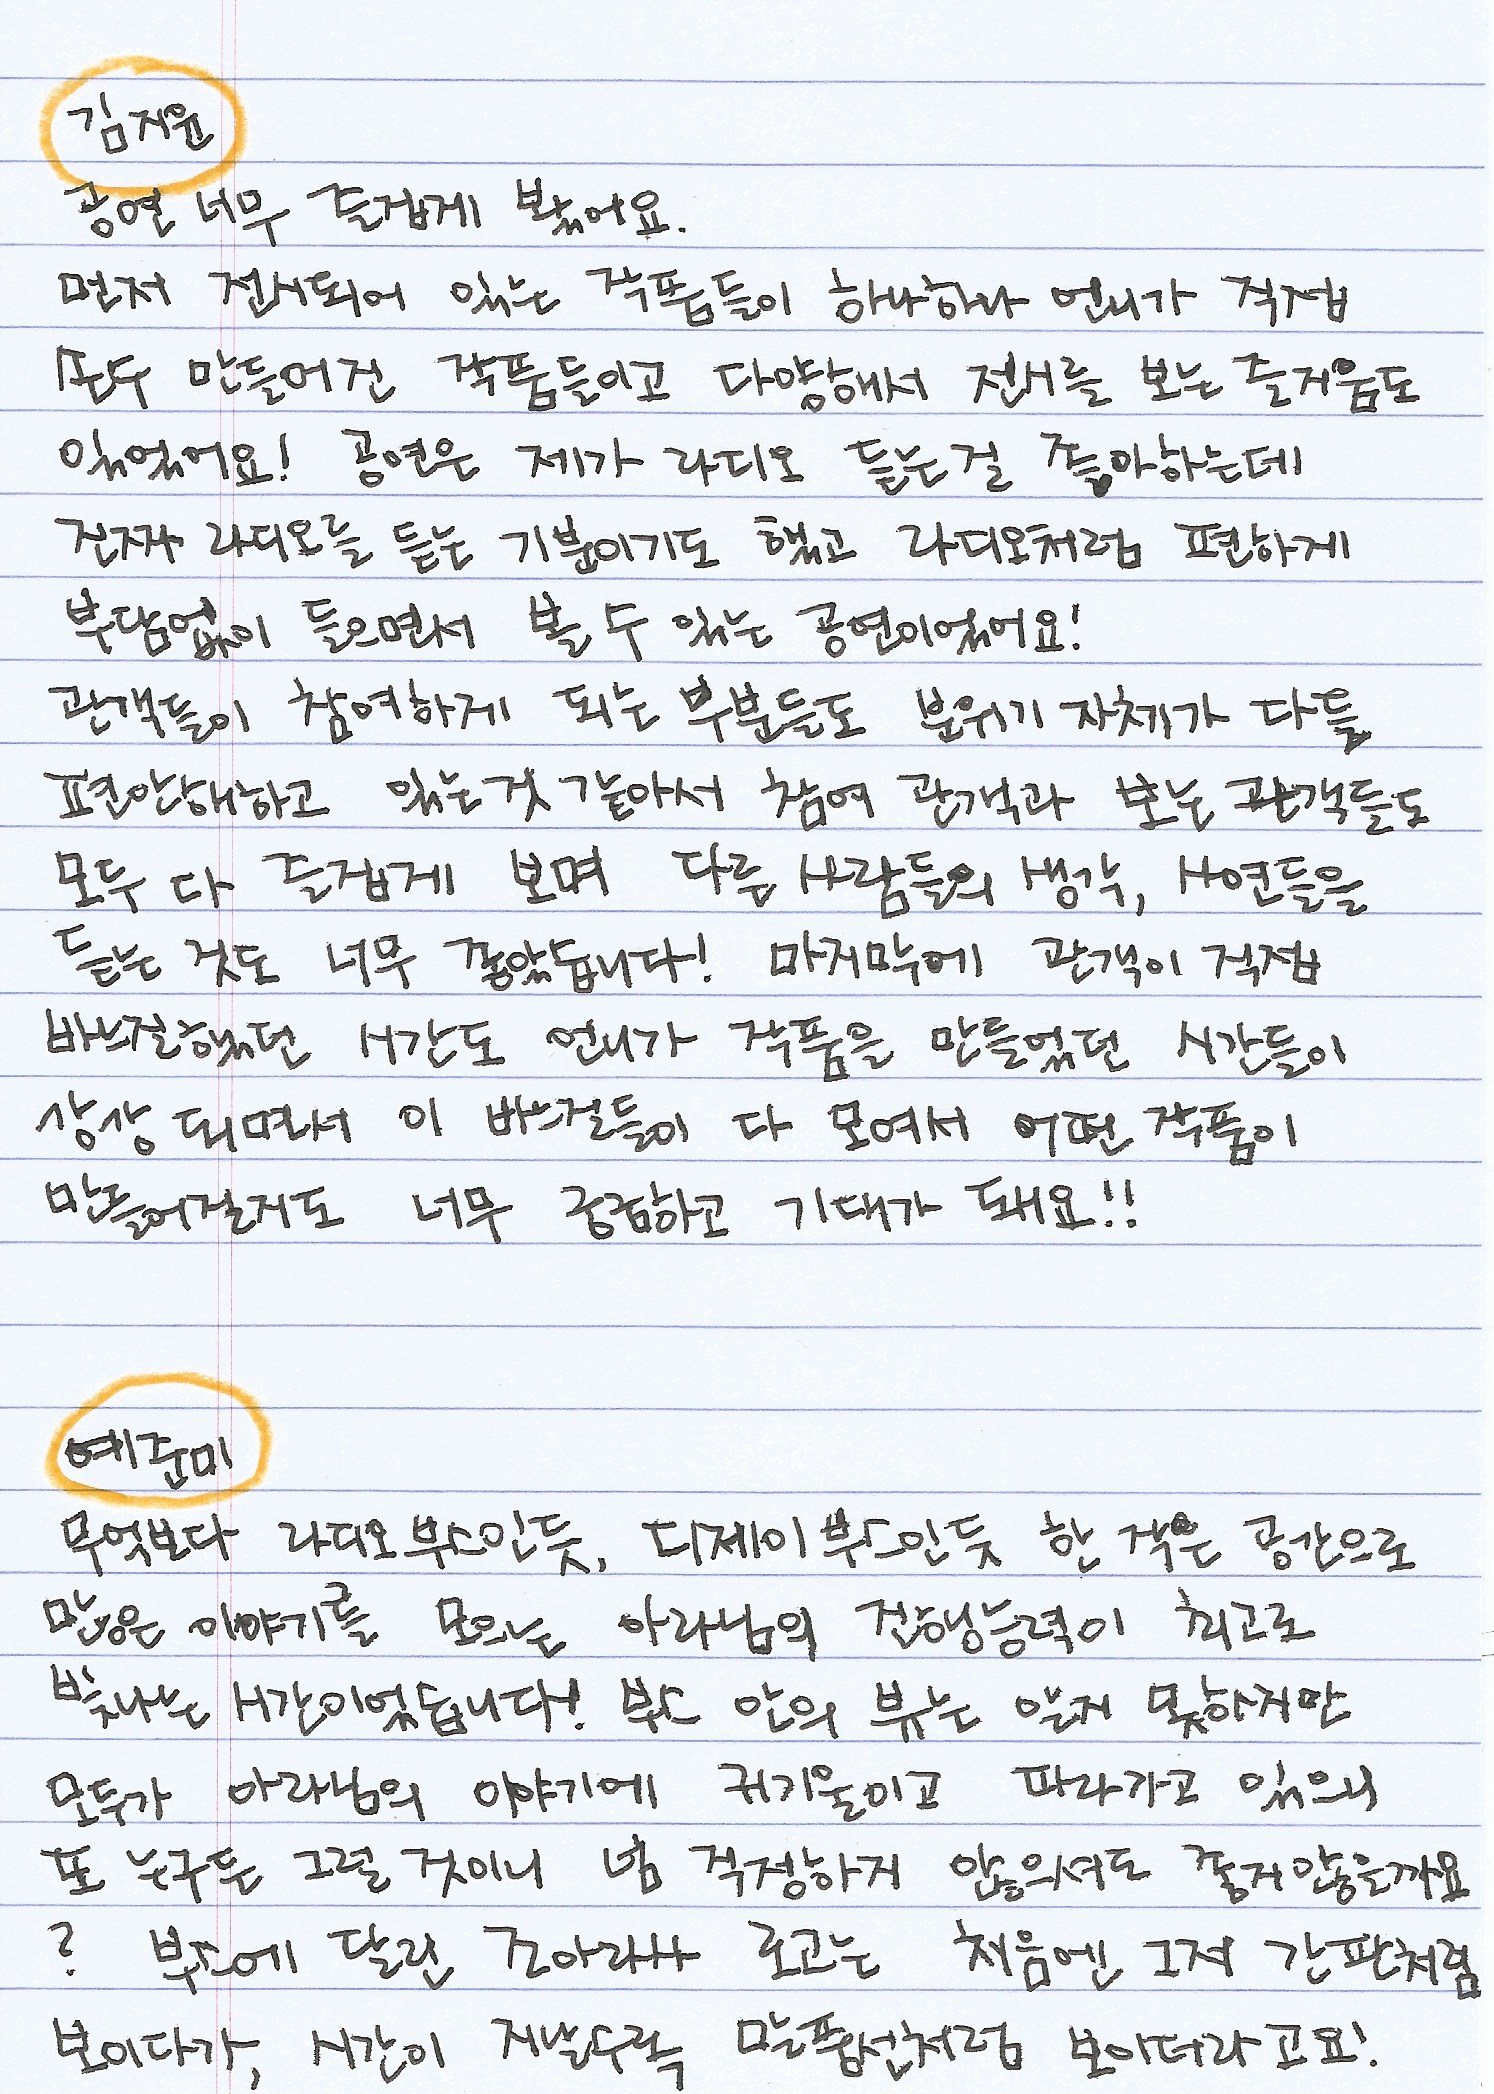 김지윤
공연 너무 즐겁게 봤어요.
먼저 전시되어 있는 작품들이 하나하나 언니가 직접
손수 만들어진 작품들이고 다양해서 전시를 보는 즐거움도
있었어요! 공연은 제가 라디오 듣는걸 좋아하는데
진짜 라디오를 듣는 기분이기도 했고 라디오처럼 편하게
부담없이 들으면서 볼 수 있는 공연이었어요!
관객들이 참여하게 되는 부분들도 분위기 자체가 다들
편안해하고 있는것 같아서 참여 관객과 보는 관객들도
모두 다 즐겁게 보며 다른 사람들의 생각, 사연들을
듣는 것도 너무 좋았습니다! 마지막에 관객이 직접
바느질했던 시간도 언니가 작품을 만들었던 시간들이
상상 되면서 이 바느질들이 다 모여서 어떤 작품이
만들어질지도 너무 궁금하고 기대가 돼요!!
예준미
무엇보다 라디오부스인듯, 디제이부스인듯 한 작은 공간으로
많은 이야기를 모으는 아라님의 진행능력이 최고로
빛나는 시간이었습니다! 부스 안의 뷰는 알지 못하지만
모두가 아라님의 이야기에 귀기울이고 따라가고 있으니
또 누구든 그럴 것이니 넘 걱정하지 않으셔도 좋지않을까요
? 부스에 달린 조아라사 로고는 처음엔 그저 간판처럼
보이다가, 시간이 지날수록 말풍선처럼 보이더라고요!